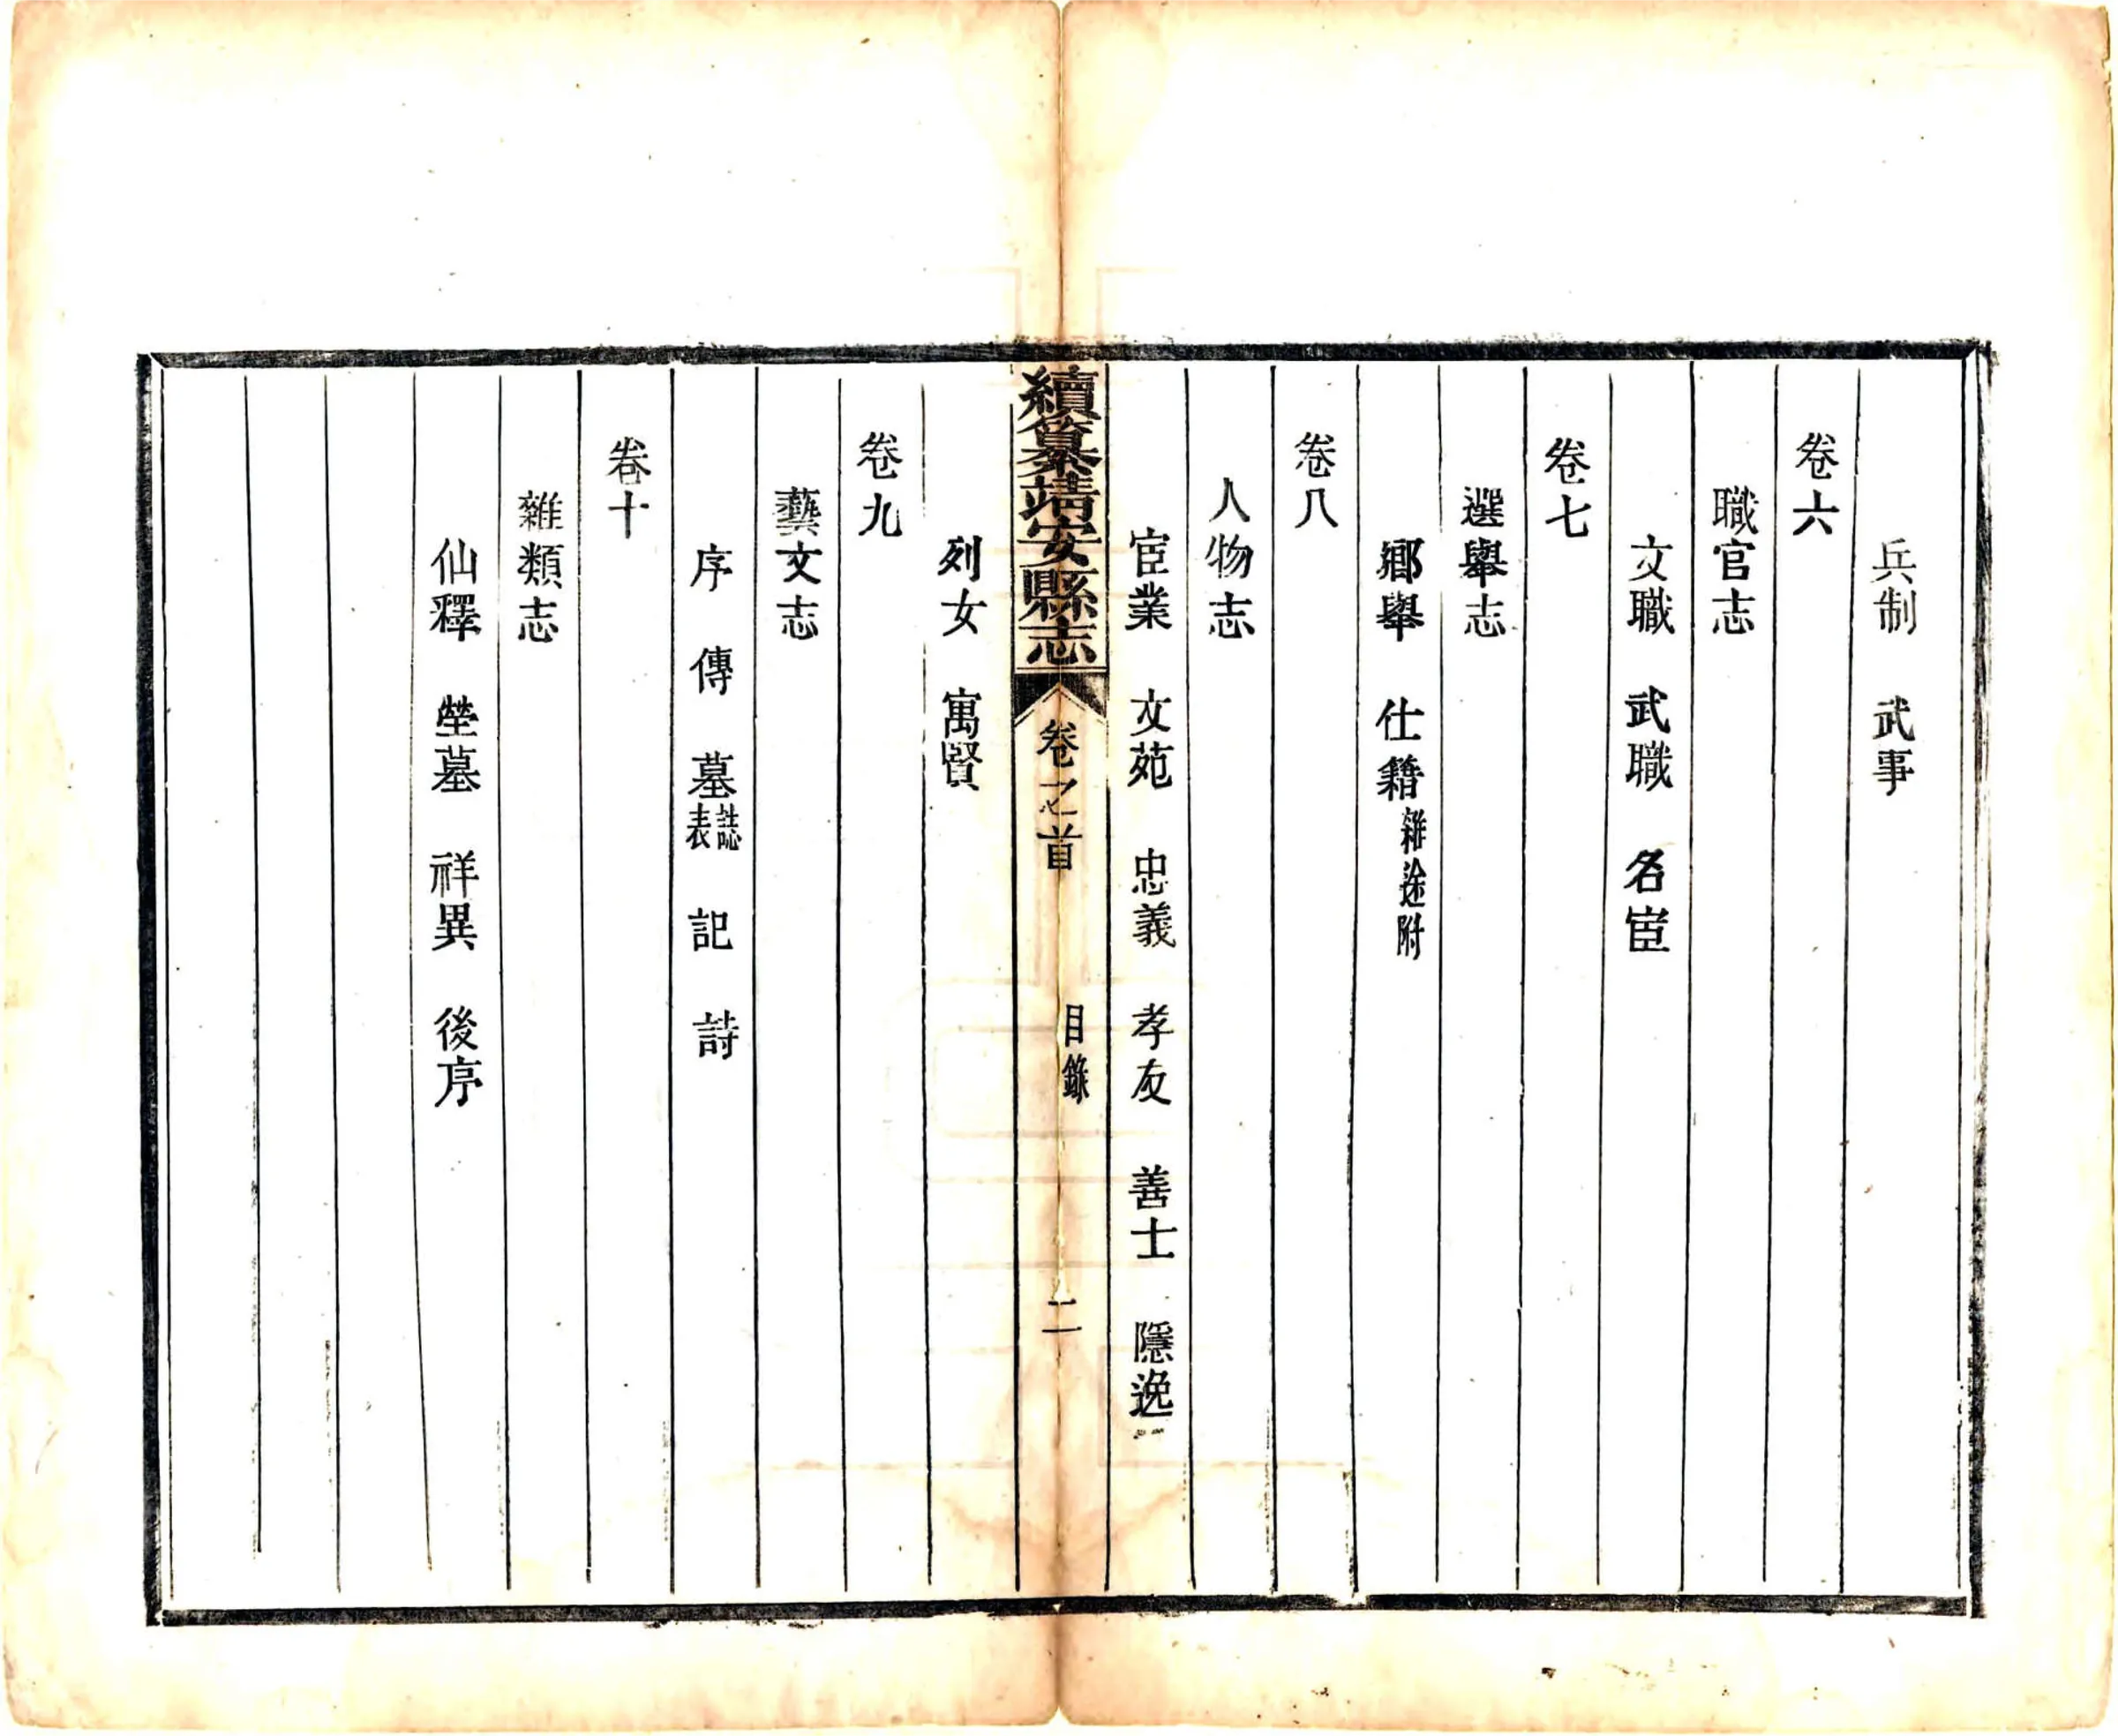 兵制　武事
卷六
職官志
文職　武職　名宦
卷七
選舉志
鄉舉　仕籍雜途附
卷八
人物志
宦業　文苑　忠義　孝友　善士　隱逸
續纂靖安縣志　卷之首　目錄　二
列女　寓賢
卷九
藝文志
序　傳　墓誌表　記　詩
卷十
雜類志
仙釋　塋墓　祥異　後序